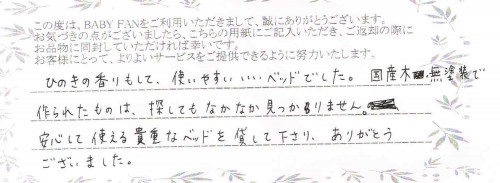 この度は、BABY FANをご利用いただきまして、誠にありがとうございます。
お気づきの点がございましたら、こちらの用紙にご記入いただき、ご返却の際に
お品物に同封していただければ幸いです。
お客様にとって、よりよいサービスをご提供できるように努力いたします。
ひのきの香りもして、使いやすいいいベッドでした。国産木 無塗装で
作られたものは、探してもなかなか見つかりません。
安心して使える貴重なベッドを貸して下さり、ありがとう
ございました。